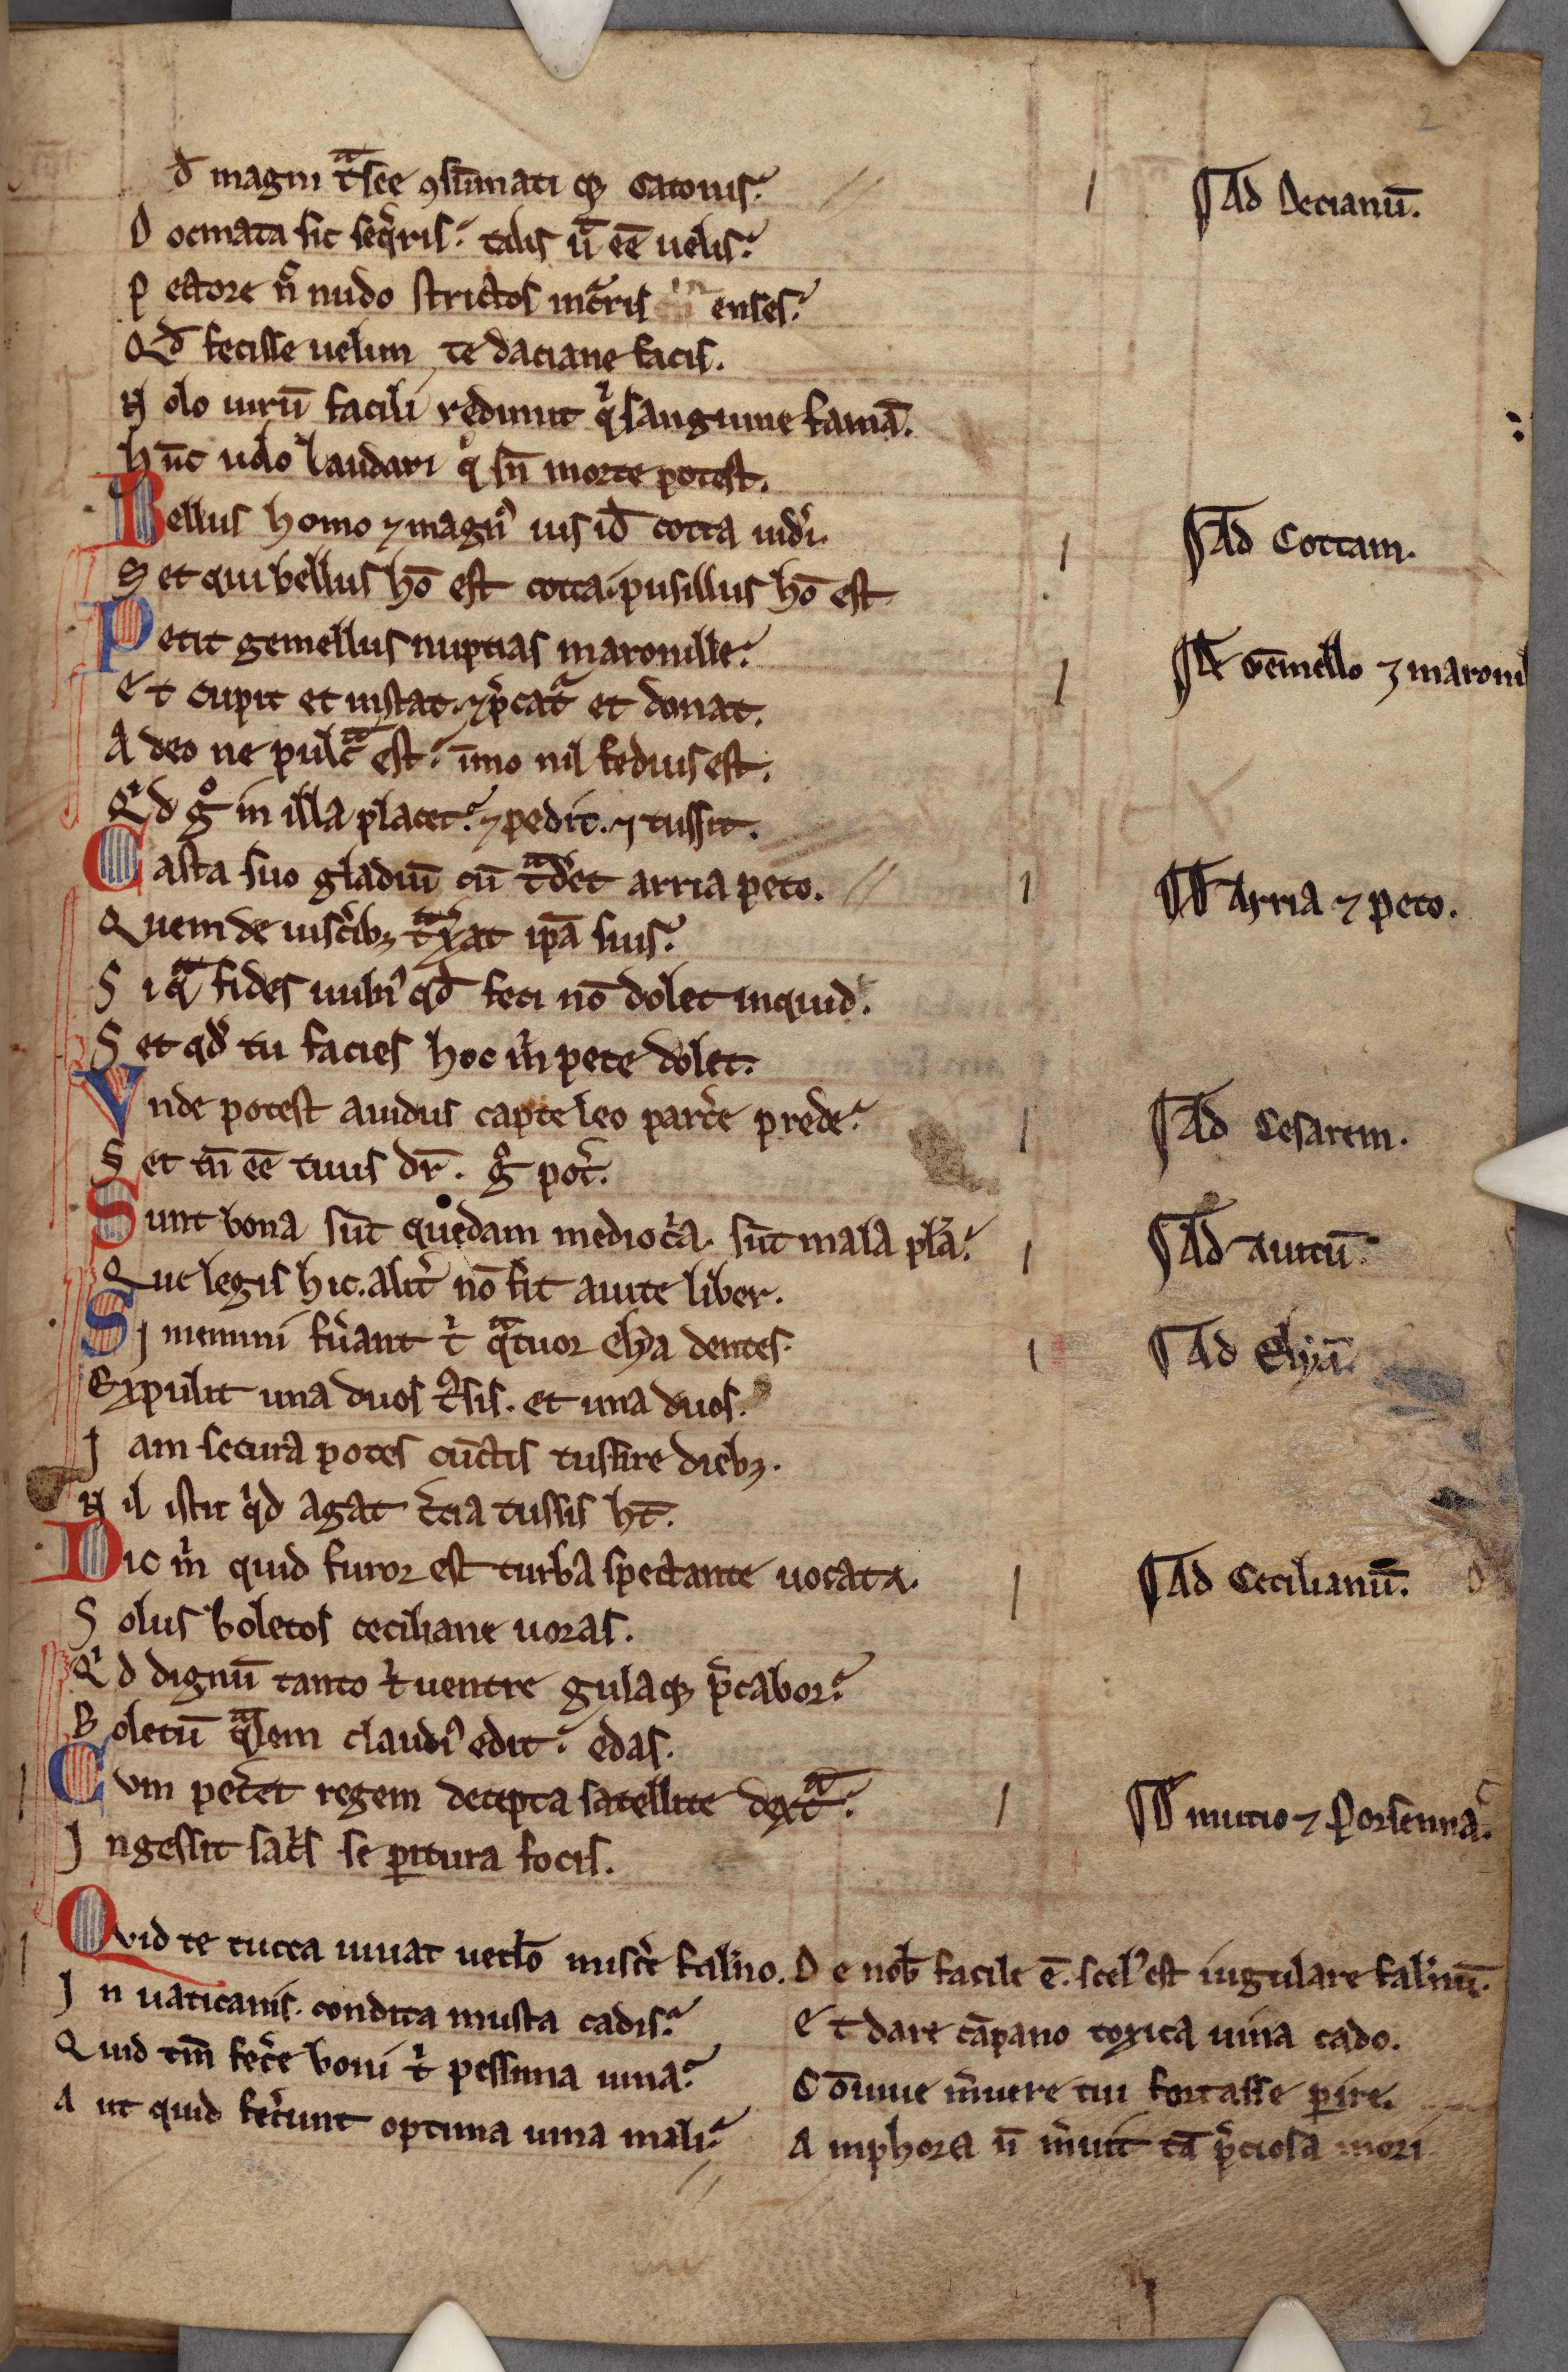 đ magni t̄ᵃsee ꝯsūmati qꝫ catonis.
¶ Ad Decianū.
D ocmata sic seq̄ris. talis ū eē uelis.
P ectore n̄ nudo strictos incͣris in enses.
Qđ fecisse uelim, te daciane facis.
N olo uirū facili redimit qⁱ sanguine famā.
h̄nc uolo laudari qⁱ sn̄ morte potest.
Bellus homo ⁊ magnꝰ uis iđ cotta uidͥi.
¶ Ad Cottam.
S et qui bellus hō est cotta. pusillus hō est
Petit gemellus nuptias maronille.
¶ De Gēmello ⁊ maronil
E t cupit et instat. ⁊ p̄catͬ et donat.
A deo ne pulcͣ est. īmo nil fedius est.
Qⁱd gͦ in illa placet. ⁊ pedit. ⁊ tussit.
Casta suo gladiū cū tͣdet arria peto.
¶ De Arria ⁊ peto.
Quem de uisc̄ibꝫ tͣxat ip̄a suis.
S i qͣ fides uulnꝰ qđ feci nō dolet inquid.
S et qđ tu facies hoc m̄ pete dolet.
Vnde potest auidus capte leo parc̄e prede.
¶ Ad Cesarem.
S et tn̄ eē tuus dr̄. gͦ pot̄.
Sunt bona sūt quedam medioc̄a. sūt mala pl̄a.
¶ Ad auitū.
Que legis hic. alit̄ nō fit auite liber.
Sj memini fūant tⁱ qͣtuor elẏa dentes.
¶ Ad Elẏā.
Expulit una duos tͧsis. et una duos.
J am secura potes cūctis tussire diebꝫ.
N il istic qⁱd agat t̄cia tussis ht̄.
Dic m̄ quid furor est turba spectante uocata.
¶ Ad Cecilianū.
S olus boletos ceciliane uoras.
Qⁱ d dignū tanto tⁱ uentre gulaqꝫ p̄cabor.
B oletū qͣlem claudiꝰ edit. edas.
Cvm pet̄et regem decepta satellite dextͣ.
¶ De mucio ⁊ Porsenna.
J ngessit sac̄s se ꝑitura focis.
Qvid te tucca iuuat uetlo miscͥe falͥno.
J n uaticanis. condita musta cadis.
Quid tm̄ fec̄e boni tⁱ pessima uina.
A ut quid fec̄unt optima uina mali.
D e nob̄ facile ē. scelꝰ est iugulare falͥnū.
E t dare cāpano toxica uina cado.
C ōuiue m̄uere tui fortasse ꝑire.
A mphora n̄ m̄uit tā p̄ciosa mori